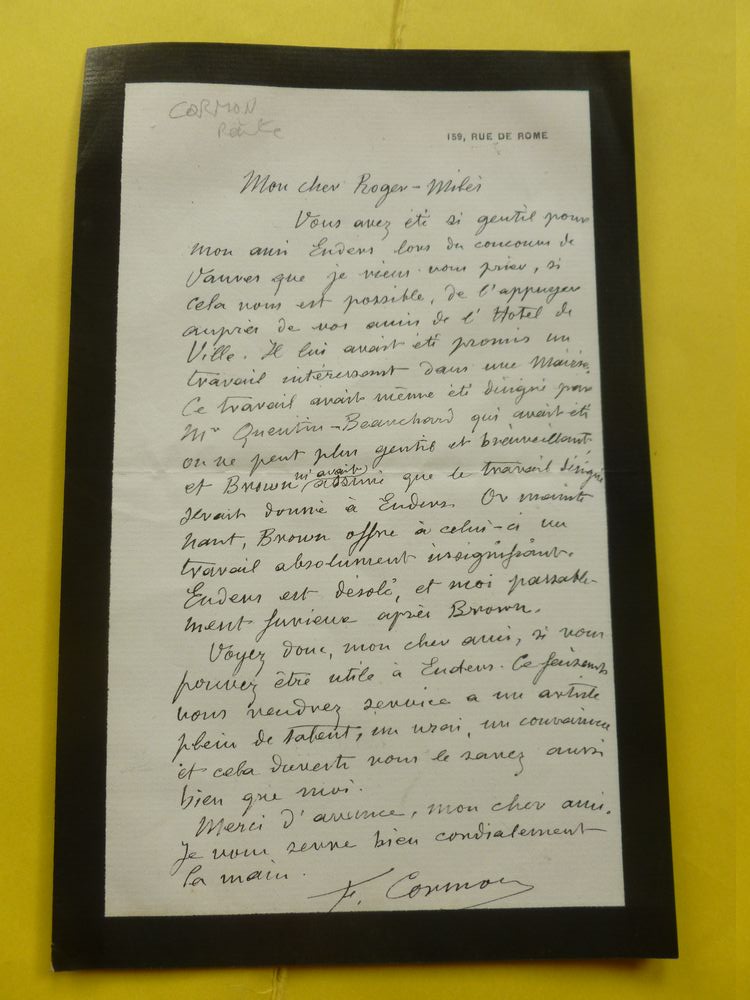 CORMON
159, RUE DE ROME
Mon cher Roger-Milès
Vous avez été si gentil pour
mon ami Enders lors du concours de
Vanves que je viens vous prier, si
cela vous est possible, de l'appuyer
auprès de vos amis de l'Hotel de
Ville. Il lui avait été promis un
travail intéressant dans une Mairie.
Ce travail avait même été désigné par
Mr Quentin-Beauchard qui avait été
on ne peut plus gentil et bienveillant
et Brown m'avait assuré que le travail désigné
serait donné à Enders. Or mainte
nant, Brown offre à celui-ci un
travail absolument insignifiant.
Enders est désolé, et moi passable-
ment furieux après Brown.
Voyez donc, mon cher ami, si vous
pouvez être utile à Enders. Ce faisant
vous rendrez service a un artiste
plein de talent, un vrai, un convaincu
et cela vous le savez aussi
bien que moi.
Merci d'avance, mon cher ami.
Je vous serre bien cordialement
la main.
F. Cormon